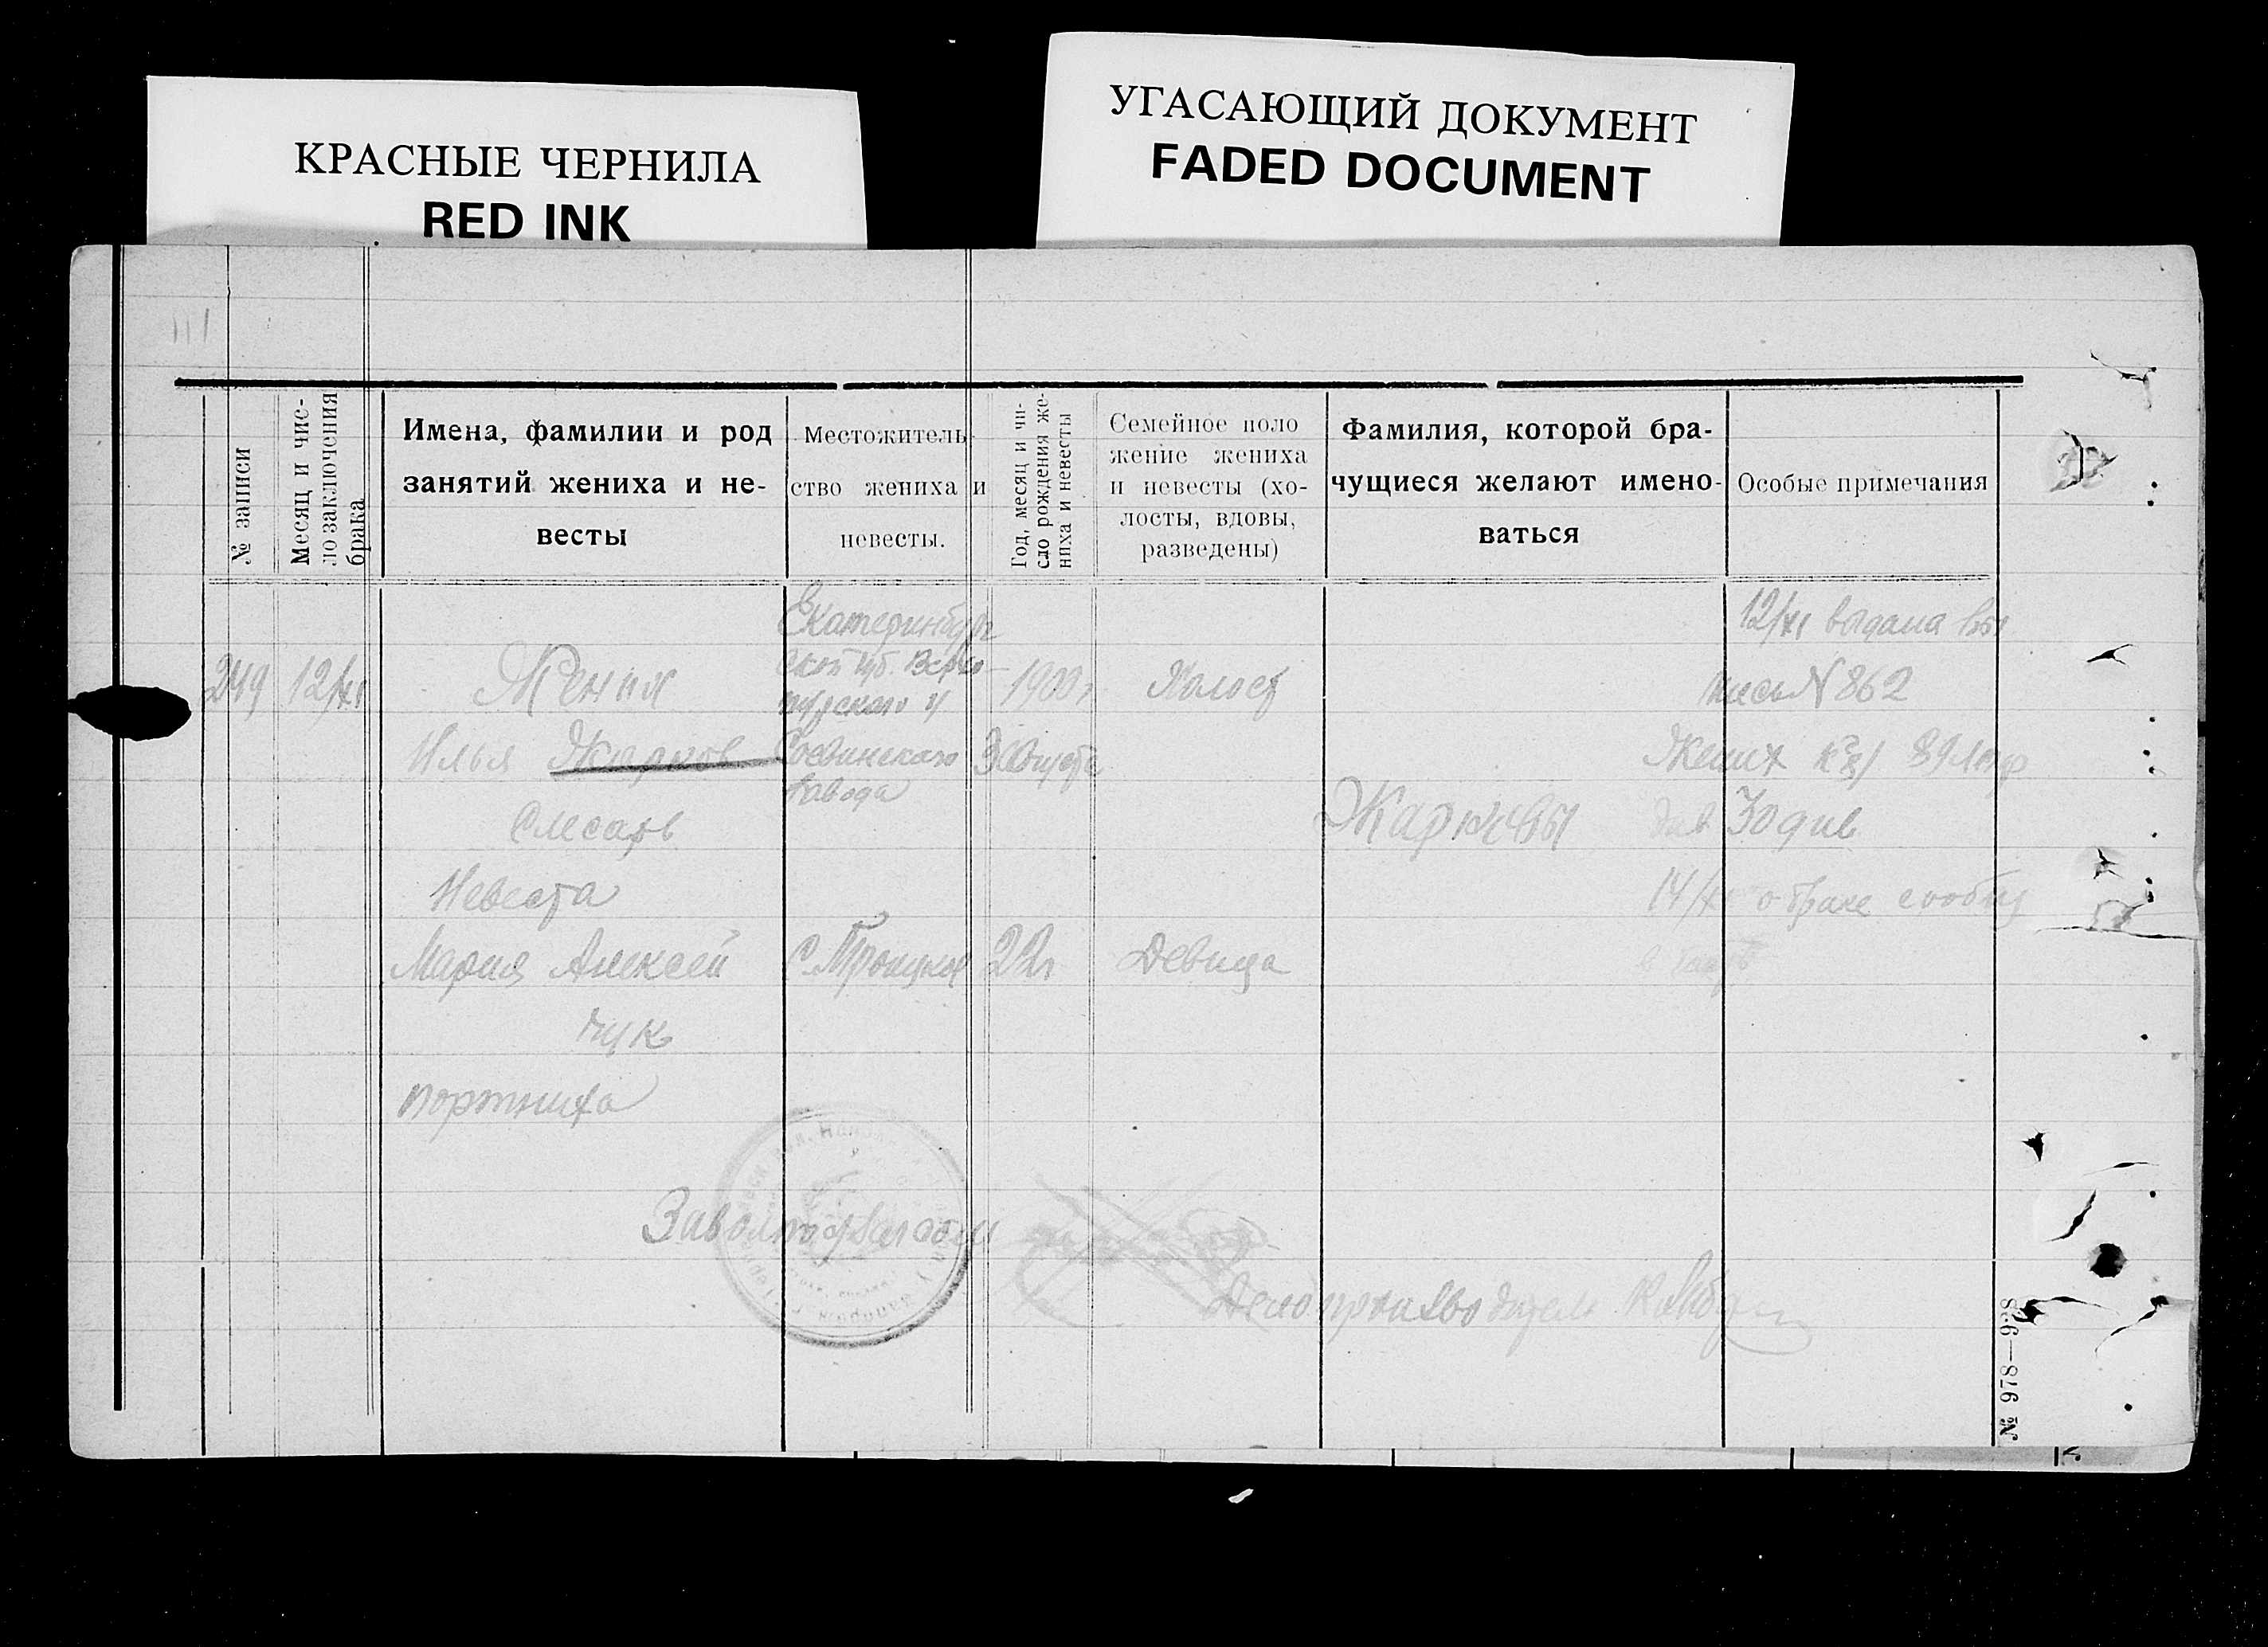 КРАСНЫЕ ЧЕРНИЛА
RED INK
УГАСАЮЩИЙ ДОКУМЕНТ
FADED DOCUMENT
№ записи
Месяц и чис-
ло заключения
брака
Имена, фамилии и род
занятий жениха и не-
весты
Местожитель-
ство жениха и
невесты.
Год, месяц и чи-
сло рождения же-
ниха и невесты
Семейное поло
жение жениха
и невесты (хо-
лосты, вдовы,
разведены)
Фамилия, которой бра-
чущиеся желают имено-
ваться
Особые примечания
249
12/XI
Жених
Илья Жарков
Слесарь
Невеста
Мария Алексей
чук
портниха
Екатеринбург
ской губ. Верхо-
турского у
завода
1900 г
3 Августа
Холост
Жарковы
12/XI выдана вы
пись № 862
Жених
30 див
14/X о браке сообщ
с. Троицкое
22 г
Девица
Делопроизводитель
№ 978—928